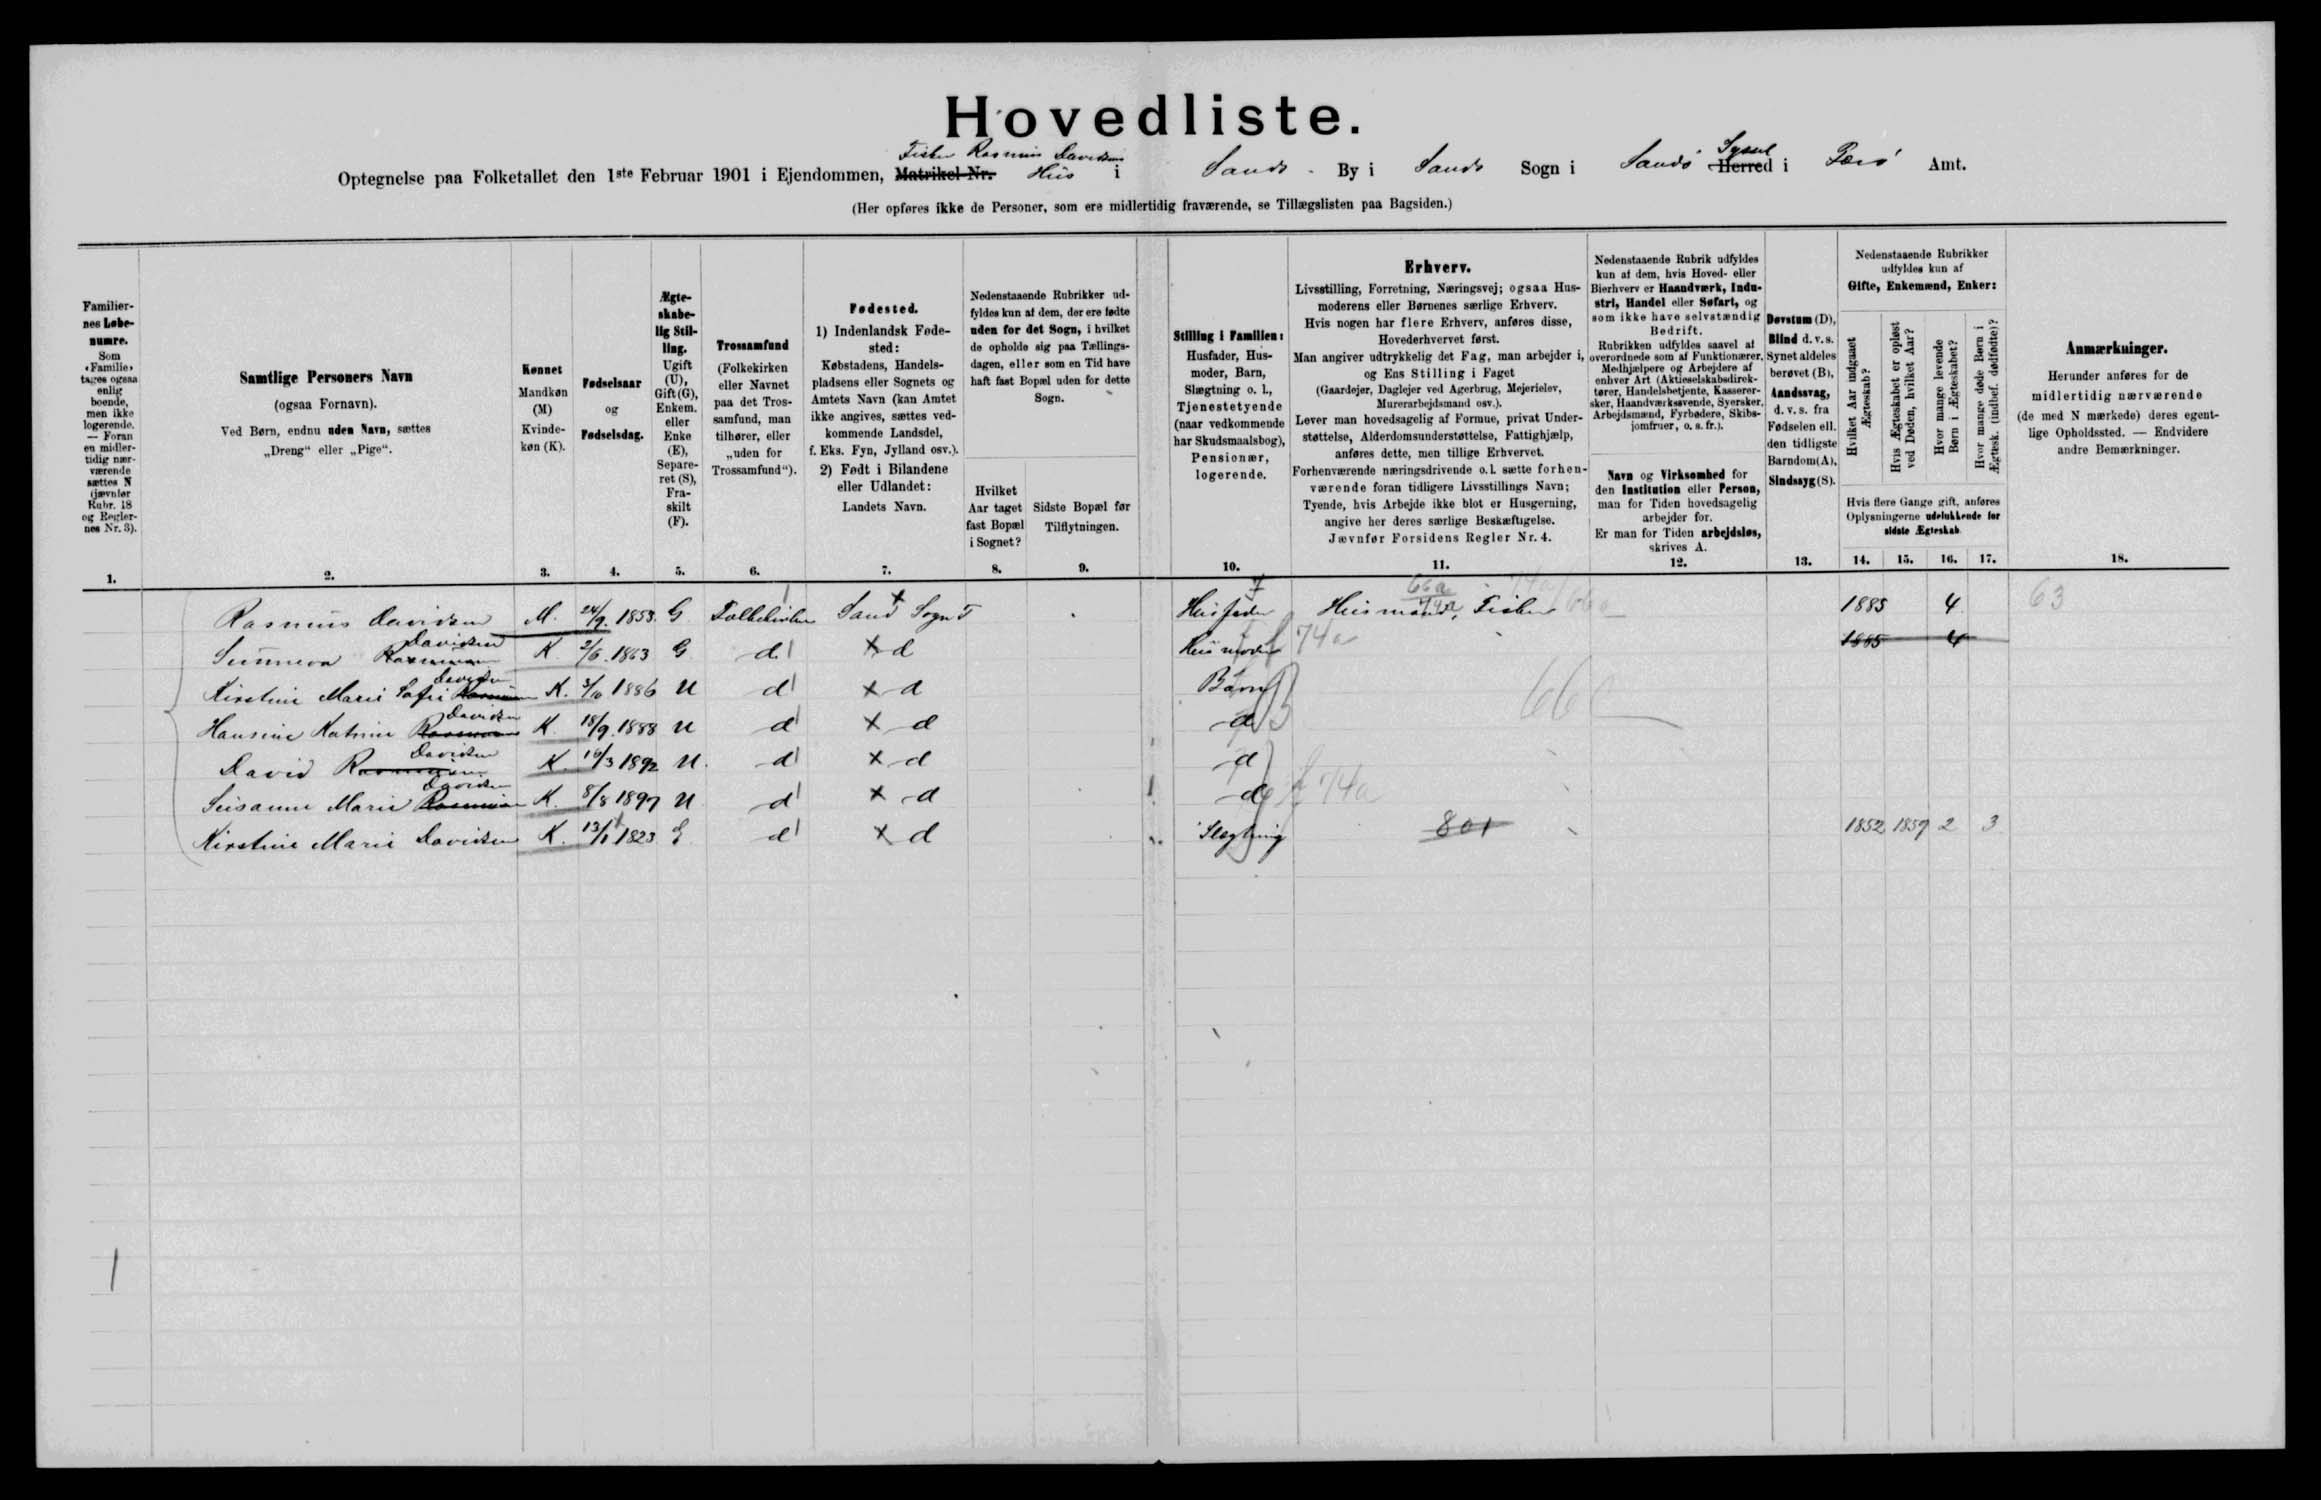 Hovedliste.
Fisker Rasmus Davidsens
Optegnelse paa Folketallet den 1ste Februar 1901 i Ejendommen, Matrikel-Nr. Hus i Sands By i Sands Sogn i Sandø Syssel Herred i Færø Amt.
(Her opføres ikke de Personer, som ere midlertidig fraværende, se Tillægslisten paa Bagsiden.)
Familier-
nes Løbe-
numre.
Som
«Familie»
tages ogsaa
enlig
boende,
men ikke
logerende.
— Foran
en midler-
tidig nær-
værende
sættes N
(jævnfør
Rubr. 18
og Regler-
nes Nr. 3).
1.
Samtlige Personers Navn
(ogsaa Fornavn).
Ved Børn, endnu uden Navn, sættes
„Dreng“ eller „Pige“.
2.
Kønnet
Mandkøn
(M)
Kvinde-
køn (K).
3.
Fødselsaar
og
Fødselsdag.
4.
Ægte-
skabe-
lig Stil-
ling.
Ugift
(U),
Gift (G),
Enkem.
eller
Enke
(E),
Separe-
ret (S),
Fra-
skilt
(F).
5.
Trossamfund
(Folkekirken
eller Navnet
paa det Tros-
samfund, man
tilhører, eller
„uden for
Trossamfund“).
6.
Fødested.
1) IndenlandskFøde-
sted:
Købstadens, Handels-
pladsens eller Sognets og
Amtets Navn (kan Amtet
ikke angives, sættes ved-
kommende Landsdel,
f. Eks. Fyn, Jylland osv.).
2) Født i Bilandene
eller Udlandet:
Landets Navn.
7.
Nedenstaaende Rubrikker ud-
fyldes kun af dem, der ere fødte
uden for det Sogn, i hvilket
de opholde sig paa Tællings-
dagen, eller som en Tid have
haft fast Bopæl uden for dette
Sogn.
Hvilket
Aar taget
fast Bopæl
i Sognet?
8.
Sidste Bopæl før
Tilflytningen.
9.
Stilling i Familien:
Husfader, Hus-
moder, Barn,
Slægtning o. l.,
Tjenestetyende
(naar vedkommende
har Skudsmaalsbog),
Pensionær,
logerende.
10.
Erhverv.
Livsstilling, Forretning, Næringsvej; ogsaa Hus-
moderens eller Børnenes særlige Erhverv.
Hvis nogen har flere Erhverv, anføres disse,
Hovederhvervet først.
Man angiver udtrykkelig det Fag, man arbejder i,
og Ens Stilling i Faget
(Gaardejer, Daglejer ved Agerbrug, Mejerielev,
Murerarbejdsmand osv.).
Lever man hovedsagelig af Formue, privat Under-
støttelse, Alderdomsunderstøttelse, Fattighjælp,
anføres dette, men tillige Erhvervet.
Forhenværende næringsdrivende o. l. sætte forhen-
værende foran tidligere Livsstillings Navn;
Tyende, hvis Arbejde ikke blot er Husgerning,
angive her deres særlige Beskæftigelse.
Jævnfør Forsidens Regler Nr. 4.
11.
Nedenstaaende Rubrik udfyldes
kun af dem, hvis Hoved- eller
Bierhverv er Haandværk, Indu-
stri, Handel eller Søfart, og
som ikke have selvstændig
Bedrift.
Rubrikken udfyldes saavel af
overordnede som af Funktionærer,
Medhjælpere og Arbejdere af
enhver Art (Aktieselskabsdirek-
tører, Handelsbetjente, Kasserer-
sker, Haandværkssvende, Syersker,
Arbejdsmænd, Fyrbødere, Skibs-
jomfruer, o. s. fr.).
Navn og Virksomhed for
den Institution eller Person,
man for Tiden hovedsagelig
arbejder for.
Er man for Tiden arbejdsløs,
skrives A.
12.
Døvstum (D),
Blind d. v. s.
Synet aldeles
berøvet (B),
Aandssvag,
d. v. s. fra
Fødselen ell.
den tidligste
Barndom (A),
Sindssyg (S).
13.
Nedenstaaende Rubrikker
udfyldes kun af
Gifte, Enkemænd, Enker:
Hvilket Aar indgaaet
Ægteskab?
Hvis Ægteskabet er opløst
ved Døden, hvilket Aar?
Hvor mange levende
Børn i Ægteskabet?
Hvor mange døde Børn i
Ægtesk. (indbef. dødfødte)?
Hvis flere Gange gift, anføres
Oplysningerne udelukkende for
sidste Ægteskab.
14. 15. 16. 17.
Anmærkninger.
Herunder anføres for de
midlertidig nærværende
(de med N mærkede) deres egent-
lige Opholdssted. — Endvidere
andre Bemærkninger.
18.
Rasmus Davidsen M. 24/9. 1853. G Folkekirken Sand Sogn Husfader Husmand, Fisker 66a 1885 4 63
Sunneva Rasmussen Davidsen K 2/6. 1863 G d d Husmoder 74a 1885 4
Kirstine Marie Sofie Davidsen K. 1886 U d d Barn
Hansine Katrine Davidsen K. 18/9. 1888 U d d d 66
David Rasmussen Davidsen K. 16/3 1892 U. d d d
Susanne Marie Davidsen K. 8/8 1897 U d d d 74a
Kirstine Marie Davidsen K. 13/1 1823 E d d Slægtning 801 1852 1859 2 3